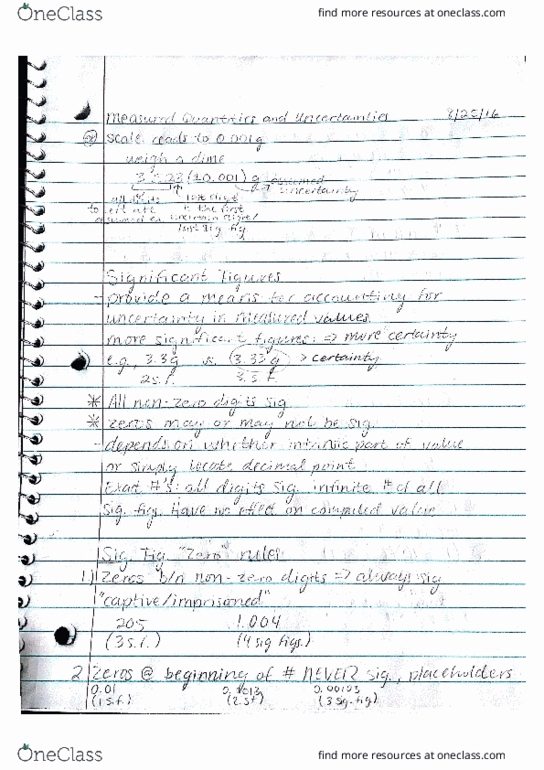 OneClass
find more resources at oneclass.com
Measured Quantities and Uncertainties 8/25/16
scale reads to 0.001g
weigh a dime
(±0.001) g assumed
uncertainty
last digit
is the first
uncertain digit/
last sig fig
Significant Figures
- provide a means for accounting for
uncertainty in measured values
more significant figures => more certainty
e.g., 3.3g vs. (3.33g) > certainty
2 s.f. 3 s.f.
* All non-zero digits sig.
* zeros may or may not be sig.
- depends on whether intrinsic part of value
or simply locate decimal point
Exact #'s: all digits sig. infinite # of all
sig. figs. Have no effect on computed value
Sig. Fig. "Zero" rules
1) Zeros b/n non-zero digits => always sig
"captive/imprisoned"
205 1.004
(3 s.f.) (4 sig figs.)
2 Zeros @ beginning of # NEVER sig., placeholders
0.01 0.00103
(1 s.f.) (2 s.f) (3 sig. fig)
OneClass
find more resources at oneclass.com